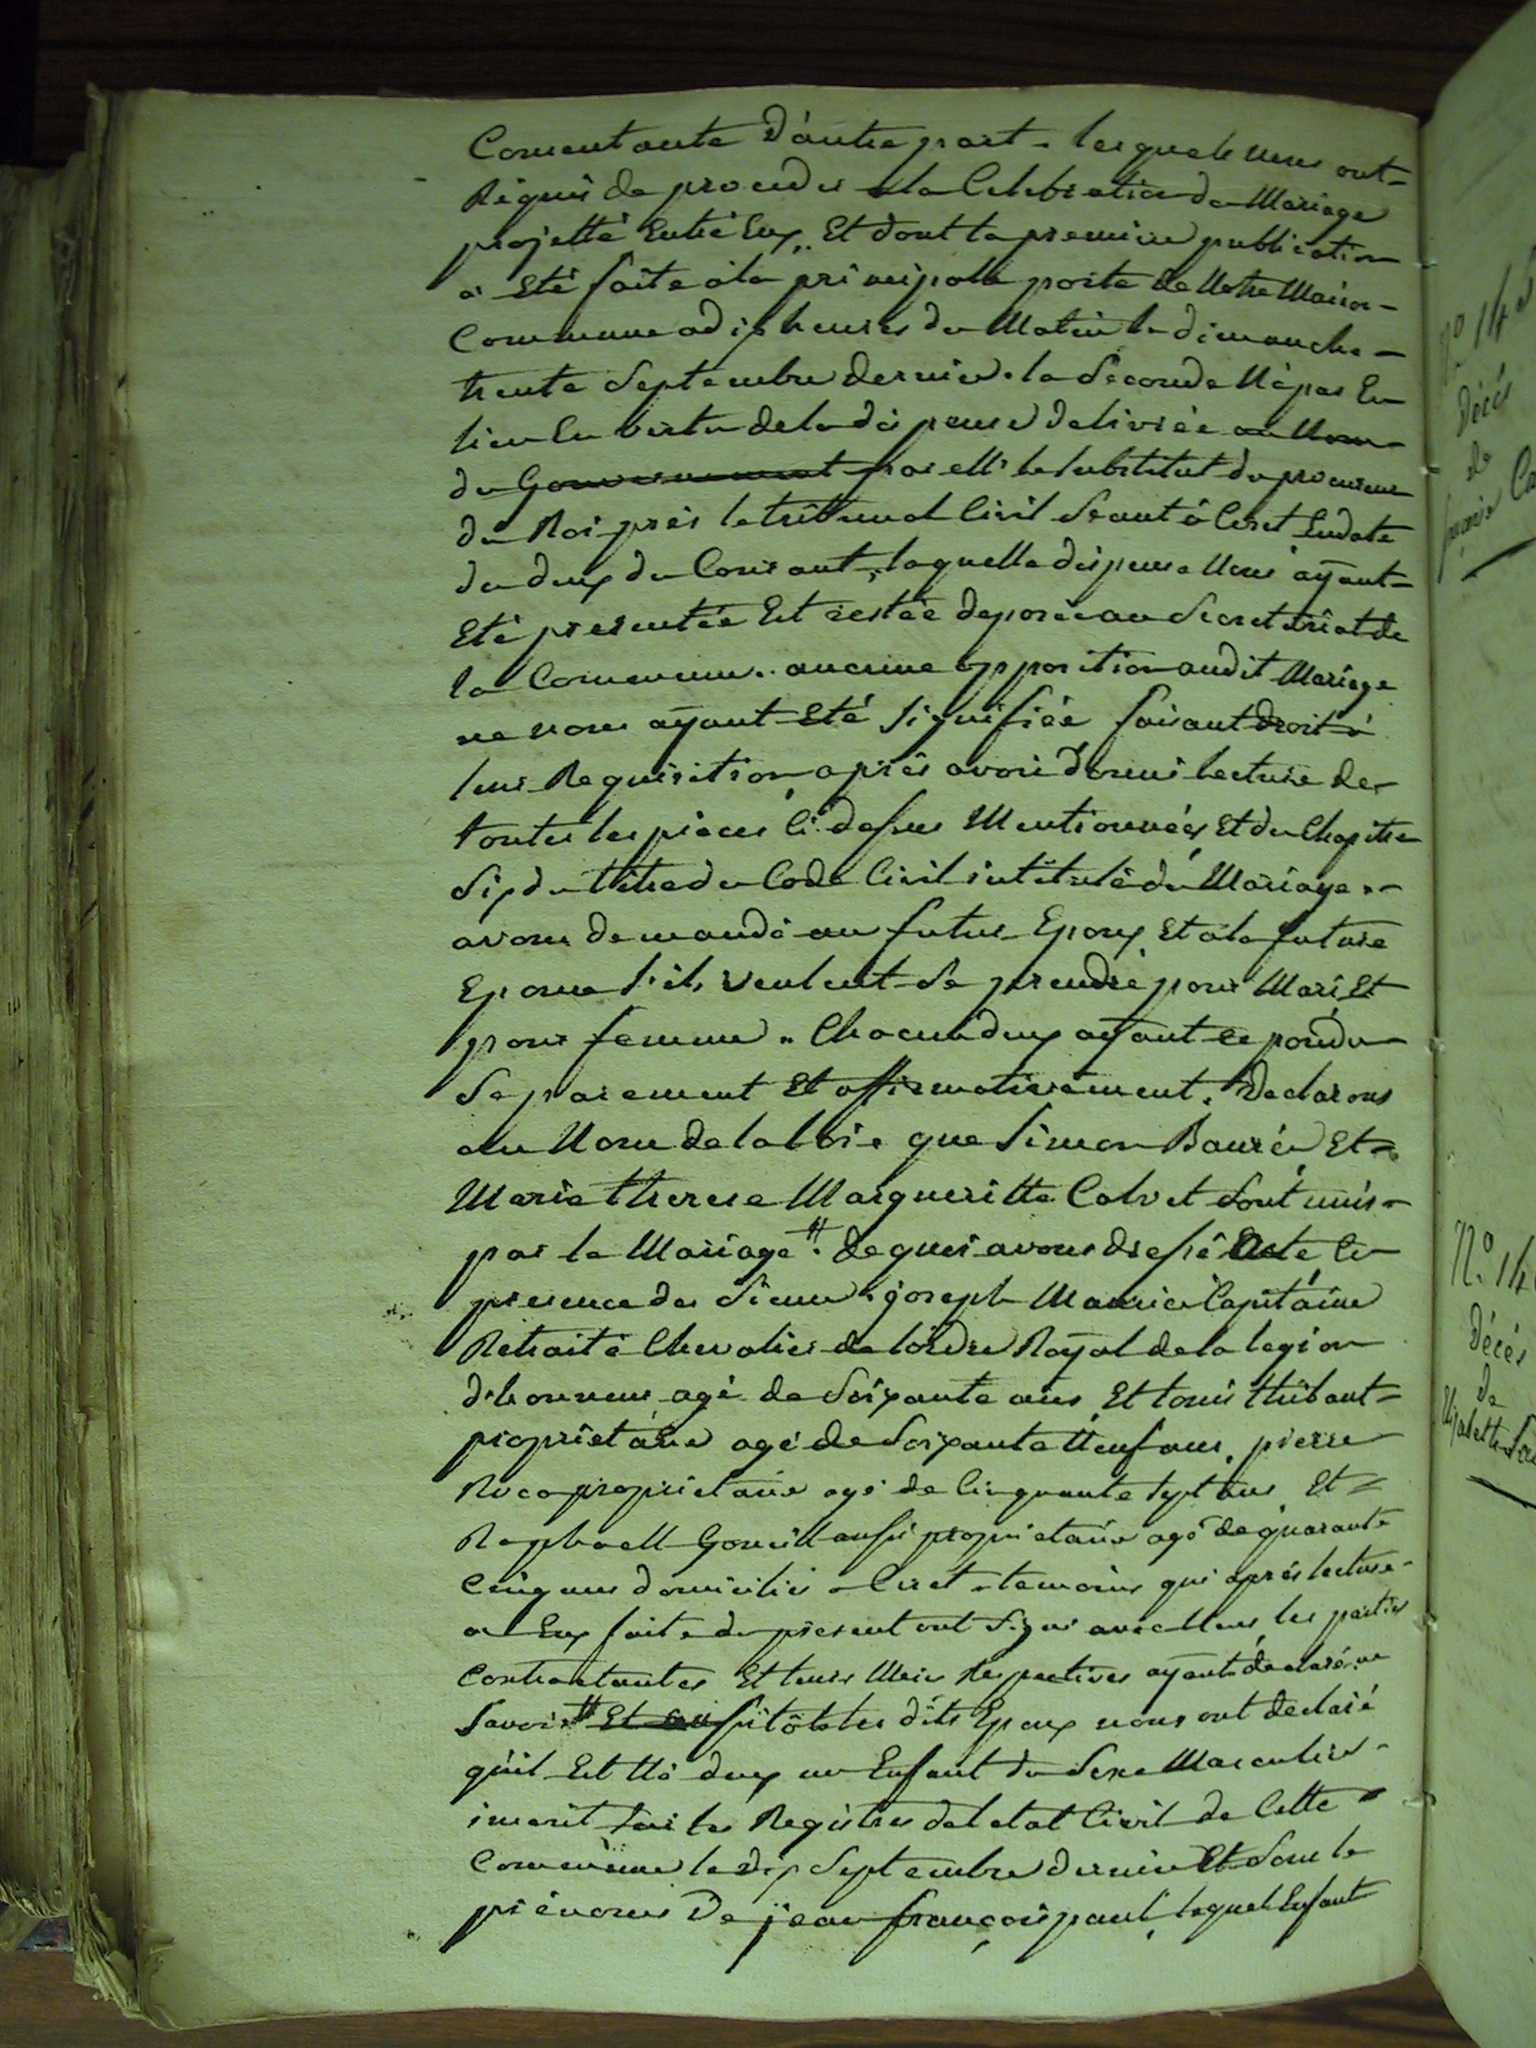 Consentante D'autre part. lesquels nous ont
Réquis de procéder a la Celebration du Mariage
projetté Entre Eux, Et dont la premiere publication
a Eté faite a la principale porte de Notre Maison
Commune a dix heures du Matin le dimanche
trente Septembre dernier. la Seconde N'a pas Eu
lieu En vertu de la dispense delivrée au Nom
du Gouvernement par Mr le Substitut du procureur
du Roi près le tribunal Civil Séant à Ceret En date
du deux du Courant, laquelle dispense Nous aÿant
Eté presentée Est restée deposée au Secretariat de
la Commune. aucune opposition audit Mariage
ne nous aÿant Eté Signifiée faisant droit à
leur Requisition, après avoir Donné lecture de
toutes les pieces Ci-dessus Mentionnées, Et du Chapitre
Six du titre du Code Civil intitulé du Mariage
avons demandé au futur Epoux Et a la future
Epouse S'ils veulent Se prendre pour Mari Et
pour femme. Chacun d'eux aÿant repondu
Separement Et affirmativement. Declarons
au Nom de la loi. que Simon Et
Marie therese Margueritte Calvet Sont unis
par le Mariage # de quoi avons dressé Acte En
presence des Sieurs joseph Capitaine
Retraité Chevalier de l'ordre Royal de la legion
d'honneur agé de Soixante ans, Et louis thibaut
propriétaire agé de Soixante Neuf ans, pierre
propriétaire agé de Cinquante Sept ans Et
Raphaell aussi propriétaire agé de quarante
Cinq ans domiciliés a Ceret temoins qui après lecture
a Eux faite du présent ont Signé avec Nous, les parties
Contractantes Et leurs Meres Respectives aÿant déclaré ne
Savoir # Et aussitôt les dits Epoux nous ont declaré
qu'il Est Né d'eux un Enfant du Sexe Masculin
inscrit Sur les Registres de l'etat Civil de Cette
Commune le dix Septembre dernier Et Sous le
prénoms De jean françois paul, lequel Enfant
N.° 14
Décés
de
N.° 14
Décés
De